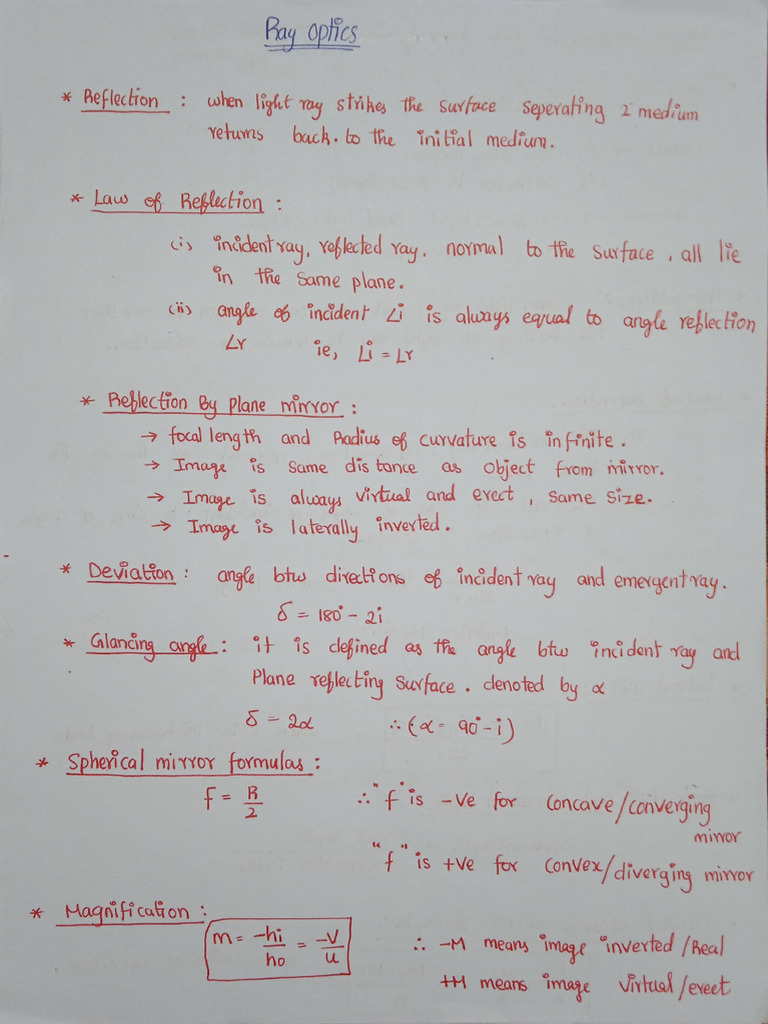 Ray optics
* Reflection : when light ray strikes the surface seperating 2 medium
returns back. to the initial medium.
* Law of Reflection :
(i) incident ray, reflected ray, normal to the surface, all lie
in the same plane.
(ii) angle of incident ∠i is always equal to angle reflection
∠r ie, ∠i = ∠r
* Reflection By plane mirror :
→ focal length and Radius of curvature is infinite.
→ Image is same distance as object from mirror.
→ Image is always virtual and erect, same size.
→ Image is laterally inverted.
* Deviation : angle btw directions of incident ray and emergent ray.
δ = 180° - 2i
* Glancing angle : it is defined as the angle btw incident ray and
Plane reflecting surface. denoted by α
δ = 2α ∴ (α = 90° - i)
* Spherical mirror formulas :
f = R/2 ∴ "f" is -ve for concave/converging
mirror
"f" is +ve for convex/diverging mirror
* Magnification :
m = -hi/ho = -v/u ∴ -M means image inverted/Real
+M means image virtual/erect